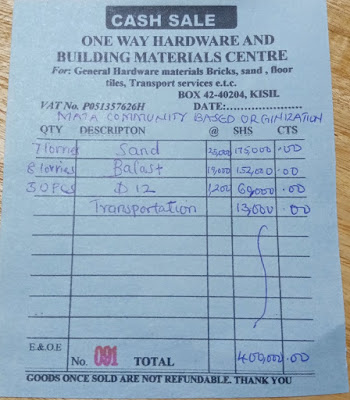 CASH SALE
ONE WAY HARDWARE AND
BUILDING MATERIALS CENTRE
For: General Hardware materials Bricks, sand , floor
tiles, Transport services e.t.c.
BOX 42-40204, KISII.
VAT No. P051357626H DATE:......................
MATA COMMUNITY BASED ORGINIZATION
QTY DESCRIPTON @ SHS CTS
7 lorries Sand 25,000 175000 .00
8 lorries Balast 19,000 152,000 .00
50 Pcs D12 1200 60,000 .00
Transportation 13,000 .00
E.&.O.E
No. 091 TOTAL 400,000.00
GOODS ONCE SOLD ARE NOT REFUNDABLE. THANK YOU